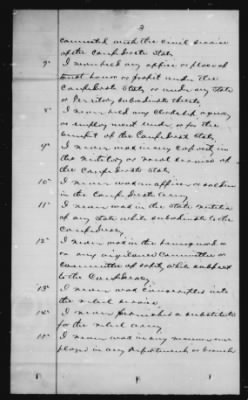 2
connected with the civil service
of the Confederate States
7" I never held any office or place of
trust honor or profit under the
Confederate States or under any State
or Territory subordinate thereto
8" I never held any clerkship agency
or employment under or for the
benefit of the Confederate States
9" I never was in any capacity in
the military or naval service of
the Confederate States
10" I never was an officer or soldier
in the Confederate Army
11" I never was in the State militia
of any State while subordinate to the
Confederacy
12" I never was in the homeguard or
on any vigilance Committee or
committee of safety while subject
to the Confederacy
13" I never was conscripted into
the rebel service
14" I never furnished a substitute
for the rebel army
15" I never was in any manner em
ployed in any department or branch